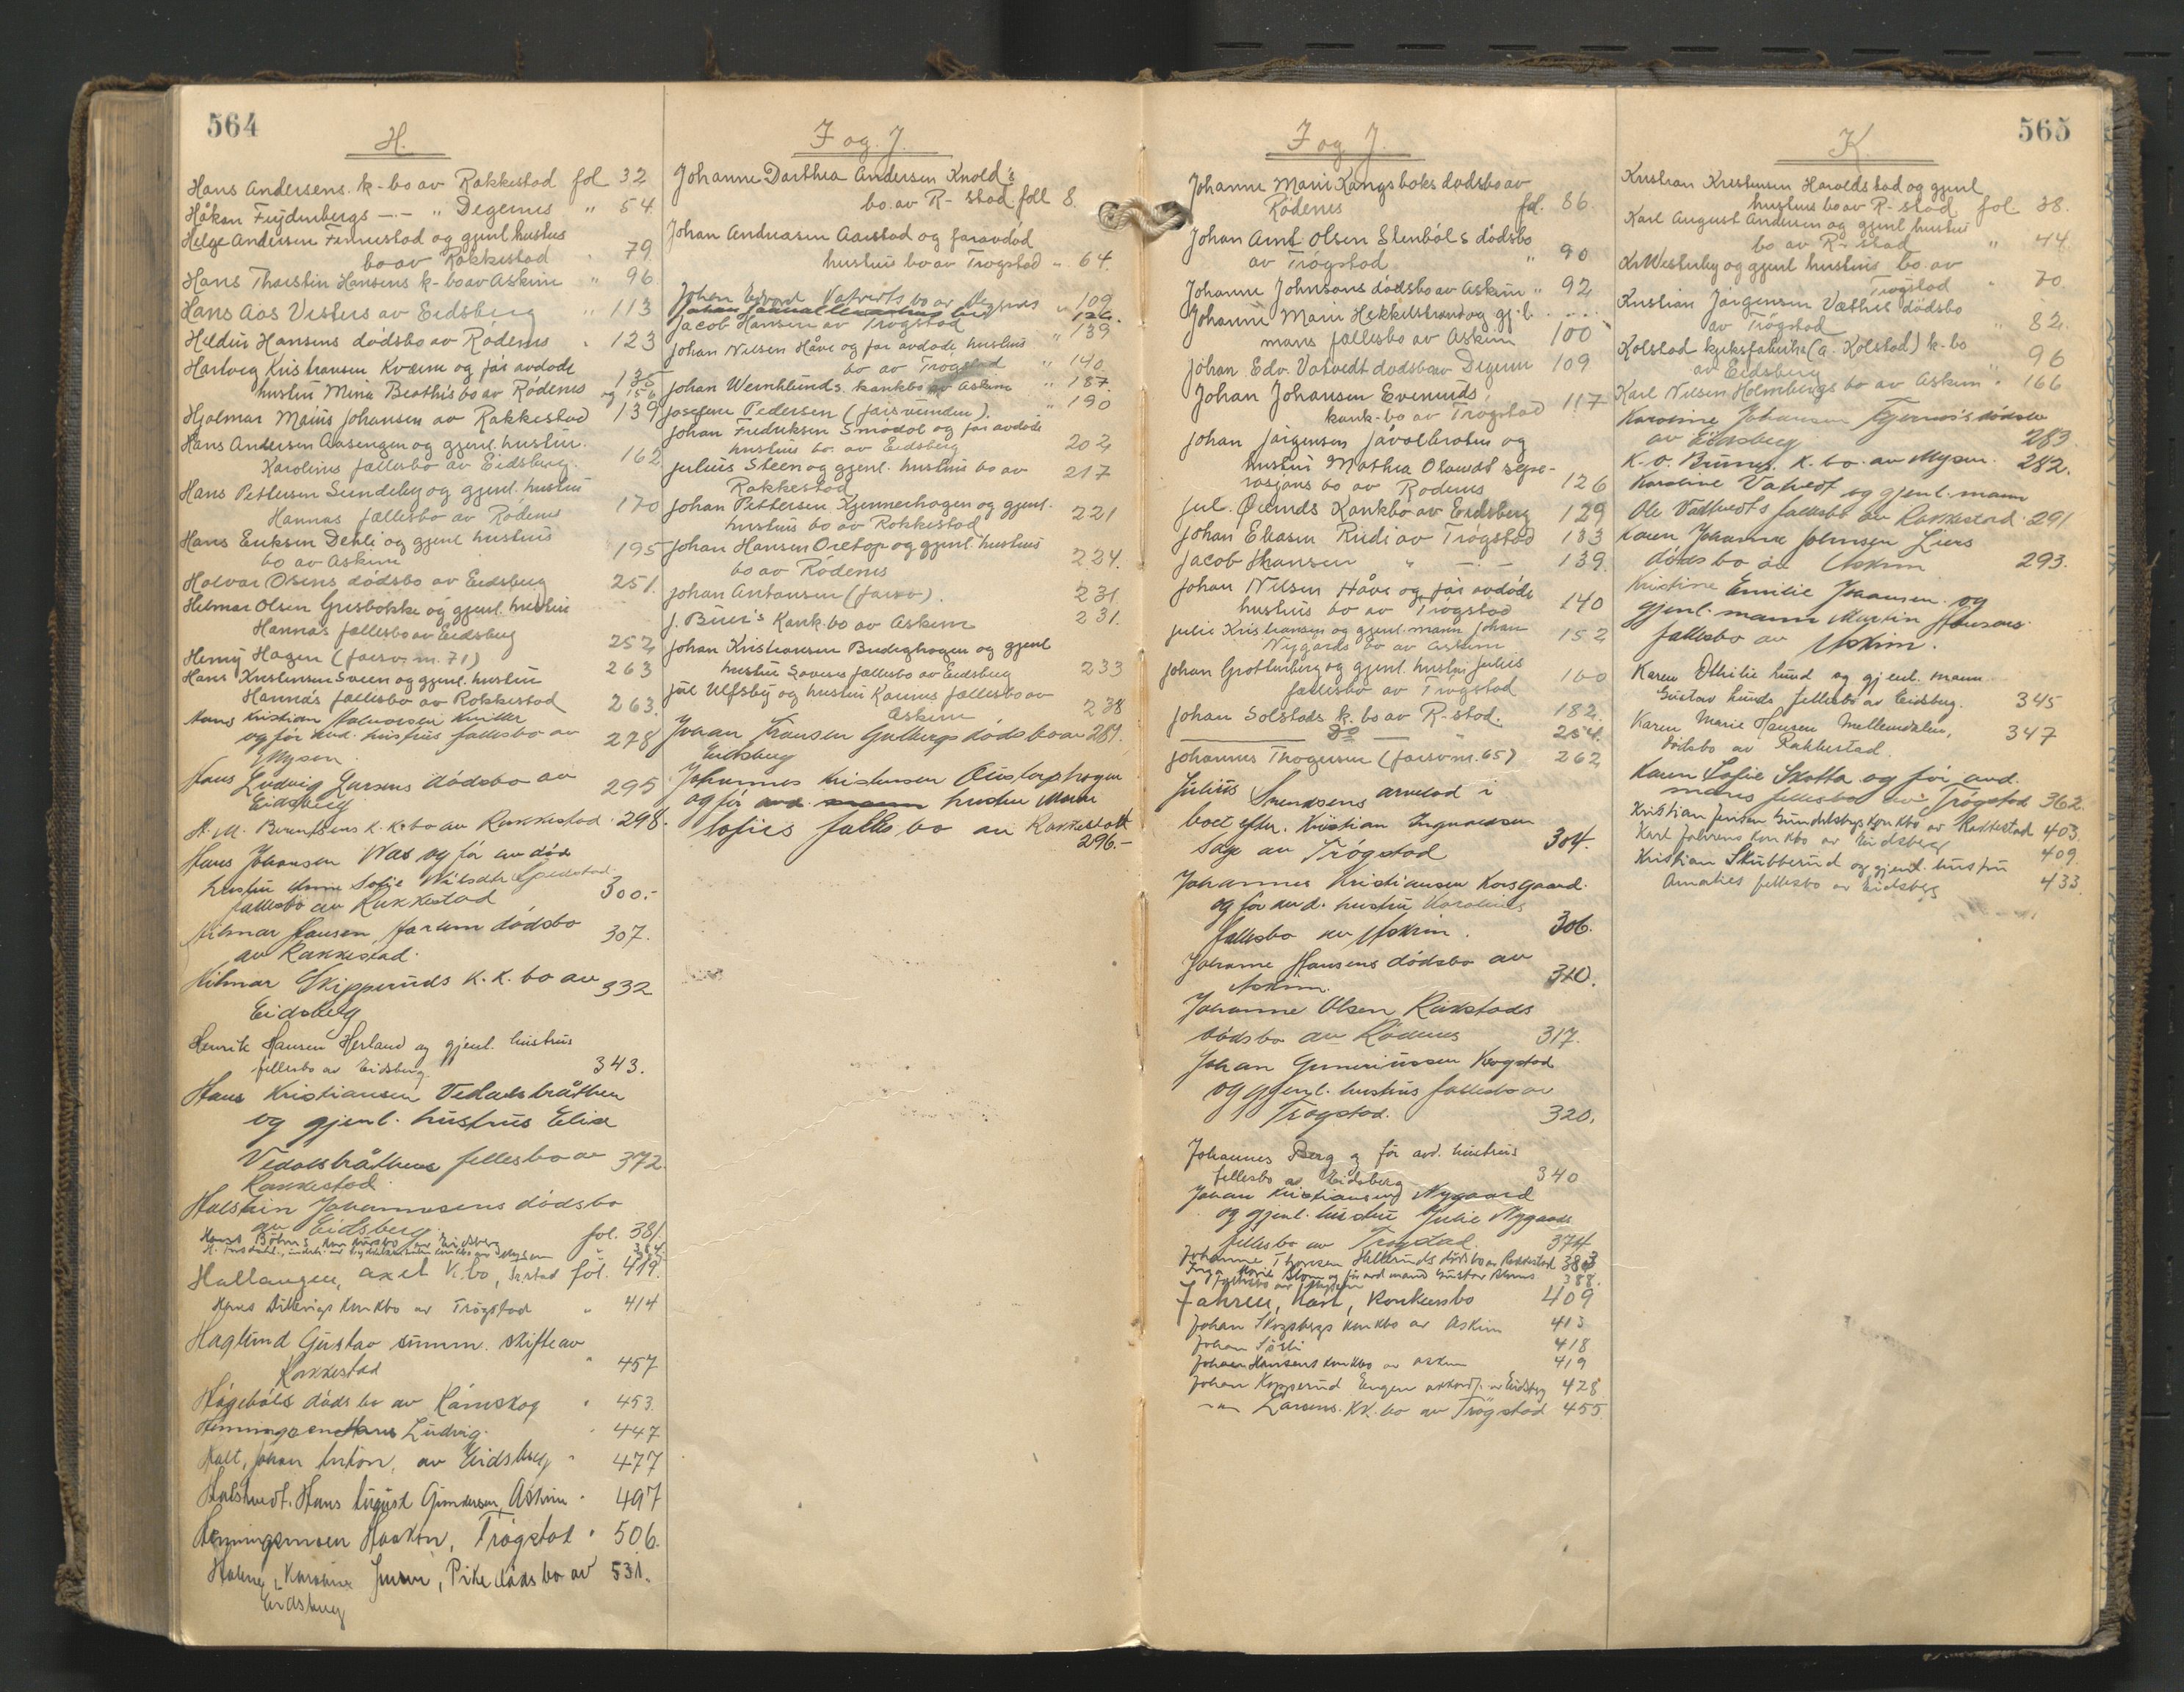 564
H.
Hans Andersens k-bo av Rakkestad fol 32
Håkon -.- " Degernes " 54
Helge Andersen Finnestad og gjenl hustrus
bo av Rakkestad " 79
Hans Thorstein Hansens k-bo av Askim " 96
Hans Aas Vesters av Eidsberg " 113
Hansens dödsbo av Rödenes " 123
Hartvig Kristiansen Kværne og før avdøde 135
hustru Mina Beathes bo av Rödenes og 156
Hjalmar Maurits Johansen av Rakkestad 139
Hans Andersen Aasengen og gjenl. hustru
Karolines fællesbo av Eidsberg. 162
Hans Pettersen Sundby og gjenl. hustru
Hannas fællesbo av Rödenes 170
Hans Eriksen Dehli og gjenl hustrus
bo av Askim 195
Halvor Olsens dödsbo av Eidsberg 251.
Helmar Olsen Grisbokke og gjenl. hustru
Hannas fællesbo av Eidsberg 252
Henry Hagen (farsv. m. 71) 263
Hans Kristensen Sveen og gjenl. hustru
Hannas fællesbo av Rakkestad 263.
Hans Kristian Halvorsen
og før avd. hustrus fællesbo av 278
Mysen
Hans Ludvig Larsens dödsbo av 295
Eidsberg
H. M. Berntsens k. k. bo av Rakkestad. 298.
Hans Johansen Aas og før av död
hustru Anne Sofie
fællesbo av Rakkestad 300.-
Hilmar Hansen Harlem dödsbo 307.
av Rakkestad.
Hilmar Skipperuds k. k. bo av 332
Eidsberg
Henrik Hansen Herland og gjenl. hustrus
fellesbo av Eidsberg. 343.
Hans Kristiansen Vedalsbråthen
og gjenl. hustrus Elise
Vedalsbråthens fellesbo av 372.
Rakkestad
Halstein Johannesens dödsbo
av Eidsberg. fol. 381
Hans Böhns konkursbo av Eidsberg
av Mysen " 384
Hallangen, axel k. bo, fol. 419.
Hans konkbo av Trögstad " 414
Haglund Gustav summ. skifte av
Rakkestad " 457
Hågebøls döds bo av Römskog " 453
Henningsen Hans Ludvig. " 447
Holt, Johan Anton, av Eidsberg " 477
Halstvedt. Hans August Gundersen, Askim " 497
Henningsmoen Haakon, Trögstad " 506.
Karoline, Pike döds bo av 531.
Eidsberg
I og J.
Johanne Dorthea Andersen Knold's
bo. av R-stad foll 8.
Johan Andreasen Aarstad og faravdöd
hustrus bo av Trøgstad " 64.
Johan Edvard Vatvedts bo av Degernes " 109
126.
Jacob Hansen av Trøgstad " 139
Johan Nilsen Håve og før avdøde hustrus
bo av Trøgstad " 140.
Johan Wernlunds. konkbo av Askim " 187.
Josefine Pedersen (farsvunden). " 190
Johan Fredriksen Smedal og før avdøde
hustrus bo av Eidsberg 202
Julius Steen og gjenl. hustrus bo av 217
Rakkestad
Johan Pettersen Kjennerhagen og gjenl.
hustrus bo av Rakkestad 221
Johan Hansen Oretop og gjenl. hustrus
bo av Rödenes 224.
Johan Antonsen (farsv.). 231
J. Buer's konk. bo av Askim 231.
Johan Kristiansen Budeghagen og gjenl
hustru Severines fællesbo av Eidsberg 233
Joh Ulfsby og hustru Karens fællesbo av
Askim 238
Johan Fransen Gulbergs dödsbo av 281.
Eidsberg
Johannes Kristensen
og før avd. hustru Maren
Sofies fælles bo av Rakkestad
296.-
565
I og J.
Johanne Marie Kangsboks dødsbo av
Rödenes fol. 86.
Johan Arnt Olsen Stenböls dødsbo
av Trögstad " 90
Johanne Johnsons dødsbo av Askim " 92
Johanne Marie Hekkelstrand og gj. l.
mans fællesbo av Askim 100
Johan Edv. Vatvedt dødsbo av Degernes 109
Johan Johansen Evenruds
konk-bo av Trøgstad 117
Johan Jørgensen og
hustru Mathea sepa-
rasjons bo av Rødenes 126
Jul. konkbo av Eidsberg 129
Johan Eliasen Rudi av Trøgstad 133
Jacob Hansen " -.- 139.
Johan Nilsen Håve og før avdøde
hustrus bo av Trøgstad 140
Julie Kristiansen og gjenl. mann Johan 152
Nygårds bo av Askim
Johan Grottenberg og gjenl. hustru Julies
fællesbo av Trøgstad 160
Johan Solstads k. bo av R-stad. 182.
Do " 254.
Johannes Thogersen (farsv m. 65) 262
Julius Svendsens arvelod i
boet efter. Kristian
av Trögstad 304.
Johannes Kristiansen Korsgaard
og før avd. hustru Karolines
fællesbo av Askim. 306.
Johanne Hansens dödsbo av
Askim. 310.
Johanne Olsen Rakstads
dödsbo av Rödenes 317.
Johan Gunerinssen Krogstad
og gjenl. hustrus fællesbo av
Trøgstad. 320.
Johannes Berg og før avd. hustrus
fellesbo av Eidsberg 340
Johan Kristiansen Nygaard
og gjenl. hustru Julie Nygaards
fellesbo av Trøgstad. 374
Johanne Thoresen Hellerunds dödsbo av Rakkestad 383
Inga Marie Blom og før avd mand Gustav Bloms 388.
fellesbo av Mysen
Jahren, Karl, Konkursbo 409
Johan Skogsbergs konkbo av Askim 413
Johan 418
Johan Hansens konkbo av Askim 419
Johan Kopperud Engen akkordf. av Eidsberg 428
-"- Larsens. KK. bo av Trögstad 455.
K.
Kristian Kristensen Haroldstad og gjenl
hustrus bo av R-stad fol 38.
Karl August Andersen og gjenl hustrus
bo av R-stad " 44.
Kr Westerby og gjenl hustrus bo. av
Trøgstad " 70
Kristian Jørgensen dödsbo
av Trögstad " 82.
Kolstad kjeksfabrikk (A. Kolstad) k-bo
av Eidsberg 96
Karl Nilsen Holmbergs bo av Askim ". 166
Karoline Johansen dödsbo
av Eidsberg 283.
K. O. Brunes. K. bo. av Mysen. 282.
Karoline Vatvedt og gjenl. mann
Ole Vatvedts fællesbo av Rakkestad. 291
Karen Johanne Johnsen
dödsbo av Askim 293.
Kristine Emilie og
gjenl. mann Martin Hansens
fællesbo av Askim.
Karen Othilie Lund og gjenl. mann
Gustav Lunds fellesbo av Eidsberg. 345
Karen Marie Hansen Mellemdalen, 347
dödsbo av Rakkestad.
Karen Sofie Skotta og før avd.
mans fellesbo av Trøgstad 362.
Kristian Jensen konkbo av Rakkestad 403.
Karl Jahrens konkbo av Eidsberg 409.
Kristian Skubberud og gjenl. hustru
Amalies fellesbo av Eidsberg 433.